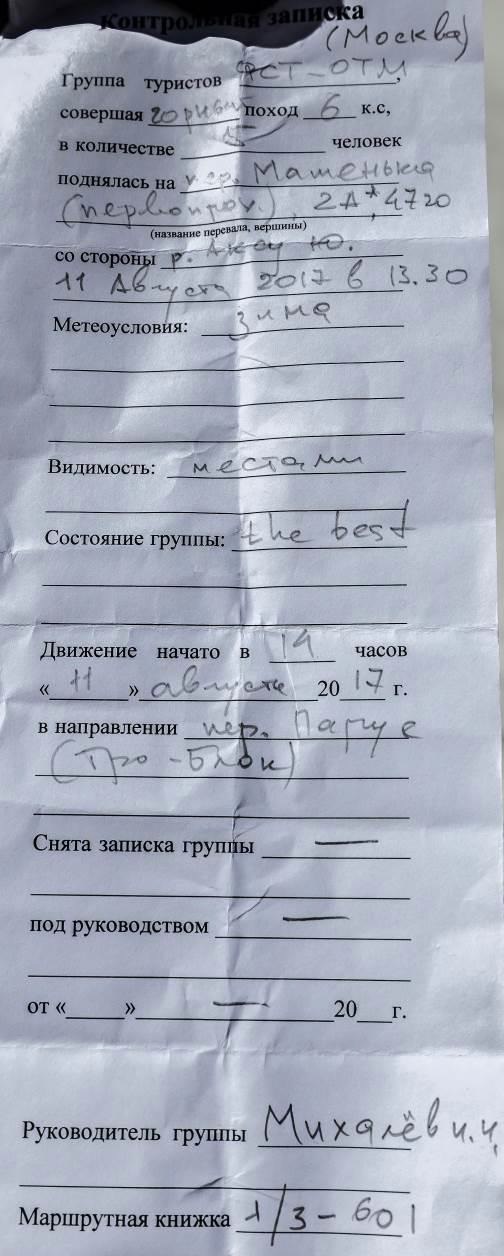 Контрольная записка
(Москва)
Группа туристов ФСТ-ОТМ,
совершая горный поход 6 к.с,
в количестве 5 человек
поднялась на пер. Машенька
(первопрох.), 2А*, 4720
(название перевала, вершины)
со стороны р. Аксу Ю.
11 Августа 2017 в 13.30
Метеоусловия: зима
Видимость: местами
Состояние группы: the best
Движение начато в 14 часов
« 11 » августа 2017 г.
в направлении пер. Парус
(Тро-Блок)
Снята записка группы —
под руководством —
от « » — 20 г.
Руководитель группы Михалёв И.
Маршрутная книжка 1/3-601